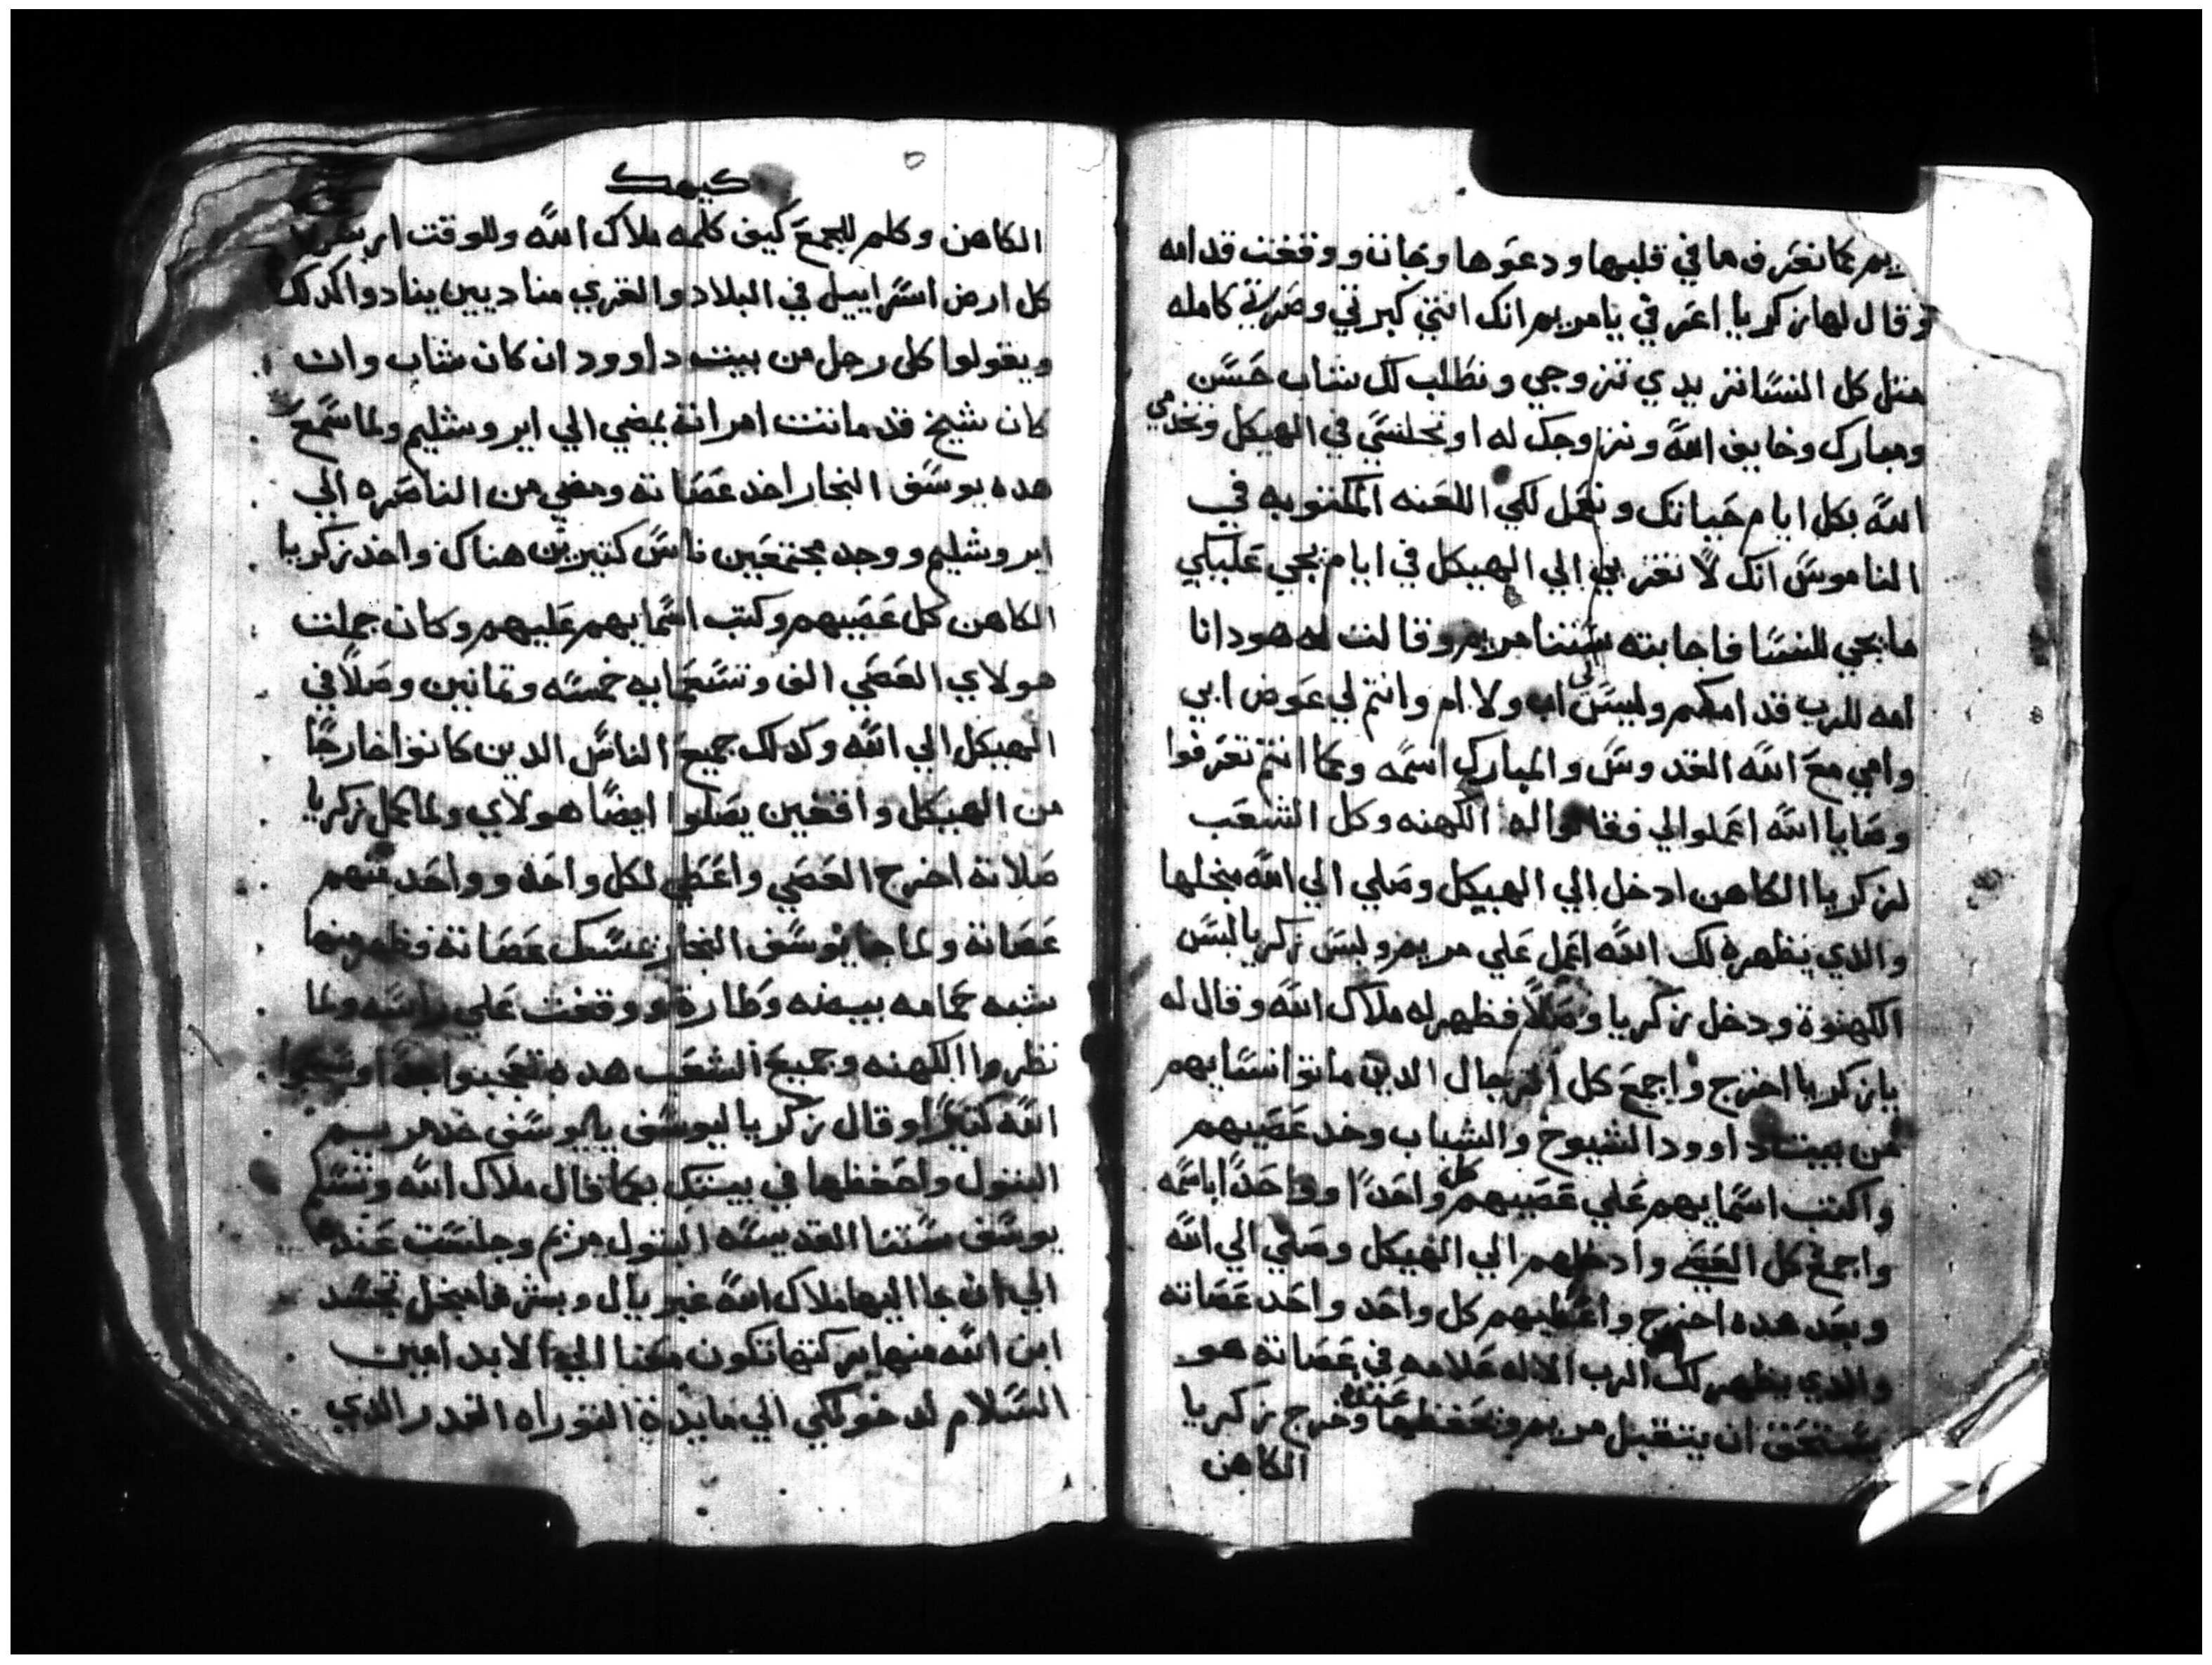 يم بما نعرف ما في قلبها ودعوها وجاتة ووقفت قدامه
وقال لها زكريا اعرفي يا مريم انك انتي كبرتي وصرتي كامله
متل كل النسا تريدي تتزوجي ونطلب لك شاب حسن
ومبارك وخايف الله ونزاوجك له او تجلسي في الهيكل وتخدمي
الله بكل ايام حياتك ونعمل لكي اللعنه المكتوبه في
الناموس انك لا تقتربي الي الهيكل في ايام يجي عليكي
ما يجي للنسا فاجابته ستنا مريم وقالت له هودا انا
امه للرب قدامكم وليس لي اب ولا ام وانتم لي عوض ابي
وامي مع الله القدوس والمبارك اسمه وبما انتم تعرفوا
وصايا الله اعملوا لي فقالوا له الكهنه وكل الشعب
لزكريا الكاهن ادخل الي الهيكل وصلي الي الله بنحلها
والدي يظهره لك الله اعمل علي مريم ولبس زكريا لبس
الكهنوة ودخل زكريا وصلا فظهر له ملاك الله وقال له
يا زكريا اخرج واجمع كل الرجال الدين ماتوا نسايهم
من بيت داوود الشيوخ والشباب وخد عصيهم
واكتب اسمايهم علي عصيهم كل واحدا وواحدا باسمه
واجمع كل العصي وادخلهم الي الهيكل وصلي الي الله
وبعد هده اخرج واعطيهم كل واحد واحد عصاته
والدي يظهر لك الرب الاله علامه في عصاته هو
يستحق ان يتقبل مريم ونحفظها عنده وخرج زكريا
الكاهن
كيهك
الكاهن وكلم للجمع كيف كلمه ملاك الله وللوقت ارسلوا
كل ارض اسراييل في البلاد والقري مناديين ينادوا اكدلك
ويقولوا كل رجل من بيت داوود ان كان شاب وان
كان شيخ قد ماتت امراتة يمضي الي ايروشليم ولما سمع
هده يوسف النجار اخد عصاته ومضي من الناصره الي
ايروشليم ووجد مجتمعين ناس كتيرين هناك واخد زكريا
الكاهن كل عصيهم وكتب اسمايهم عليهم وكان جملت
هولاي العصي الف وتسعمايه خمسه وتمانين وصلا في
الهيكل الي الله وكدلك جميع الناس الدين كانوا خارجا
من الهيكل واقفين يصلوا ايضا هولاي ولما كمل زكريا
صلاتة اخرج العصي واعطي لكل واحد وواحد منهم
عصاتة ولما جا يوسف النجار عسك عصاتة فظهر منها
شبه حمامه بيضه وطارة ووقفت علي راسه ولما
نظروا الكهنه وجميع الشعب هده تعجبوا جدا وسبحوا
الله كتيرا وقال زكريا ليوسف يا يوسف خد مريم
البتول واحفظها في بيتك بما قال ملاك الله وتسلم
يوسف ستنا القديسه البتول مريم وجلست عنده
الي ان جا اليها ملاك الله غبريال وبشرها منجل تجسد
ابن الله منها بركتها تكون معنا الي الابد امين
السلام لدخولكي الي مايدة التوراه القدر الدي